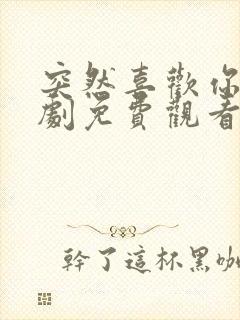 突然喜歡你
劇免費觀看
幹了這杯黑咖